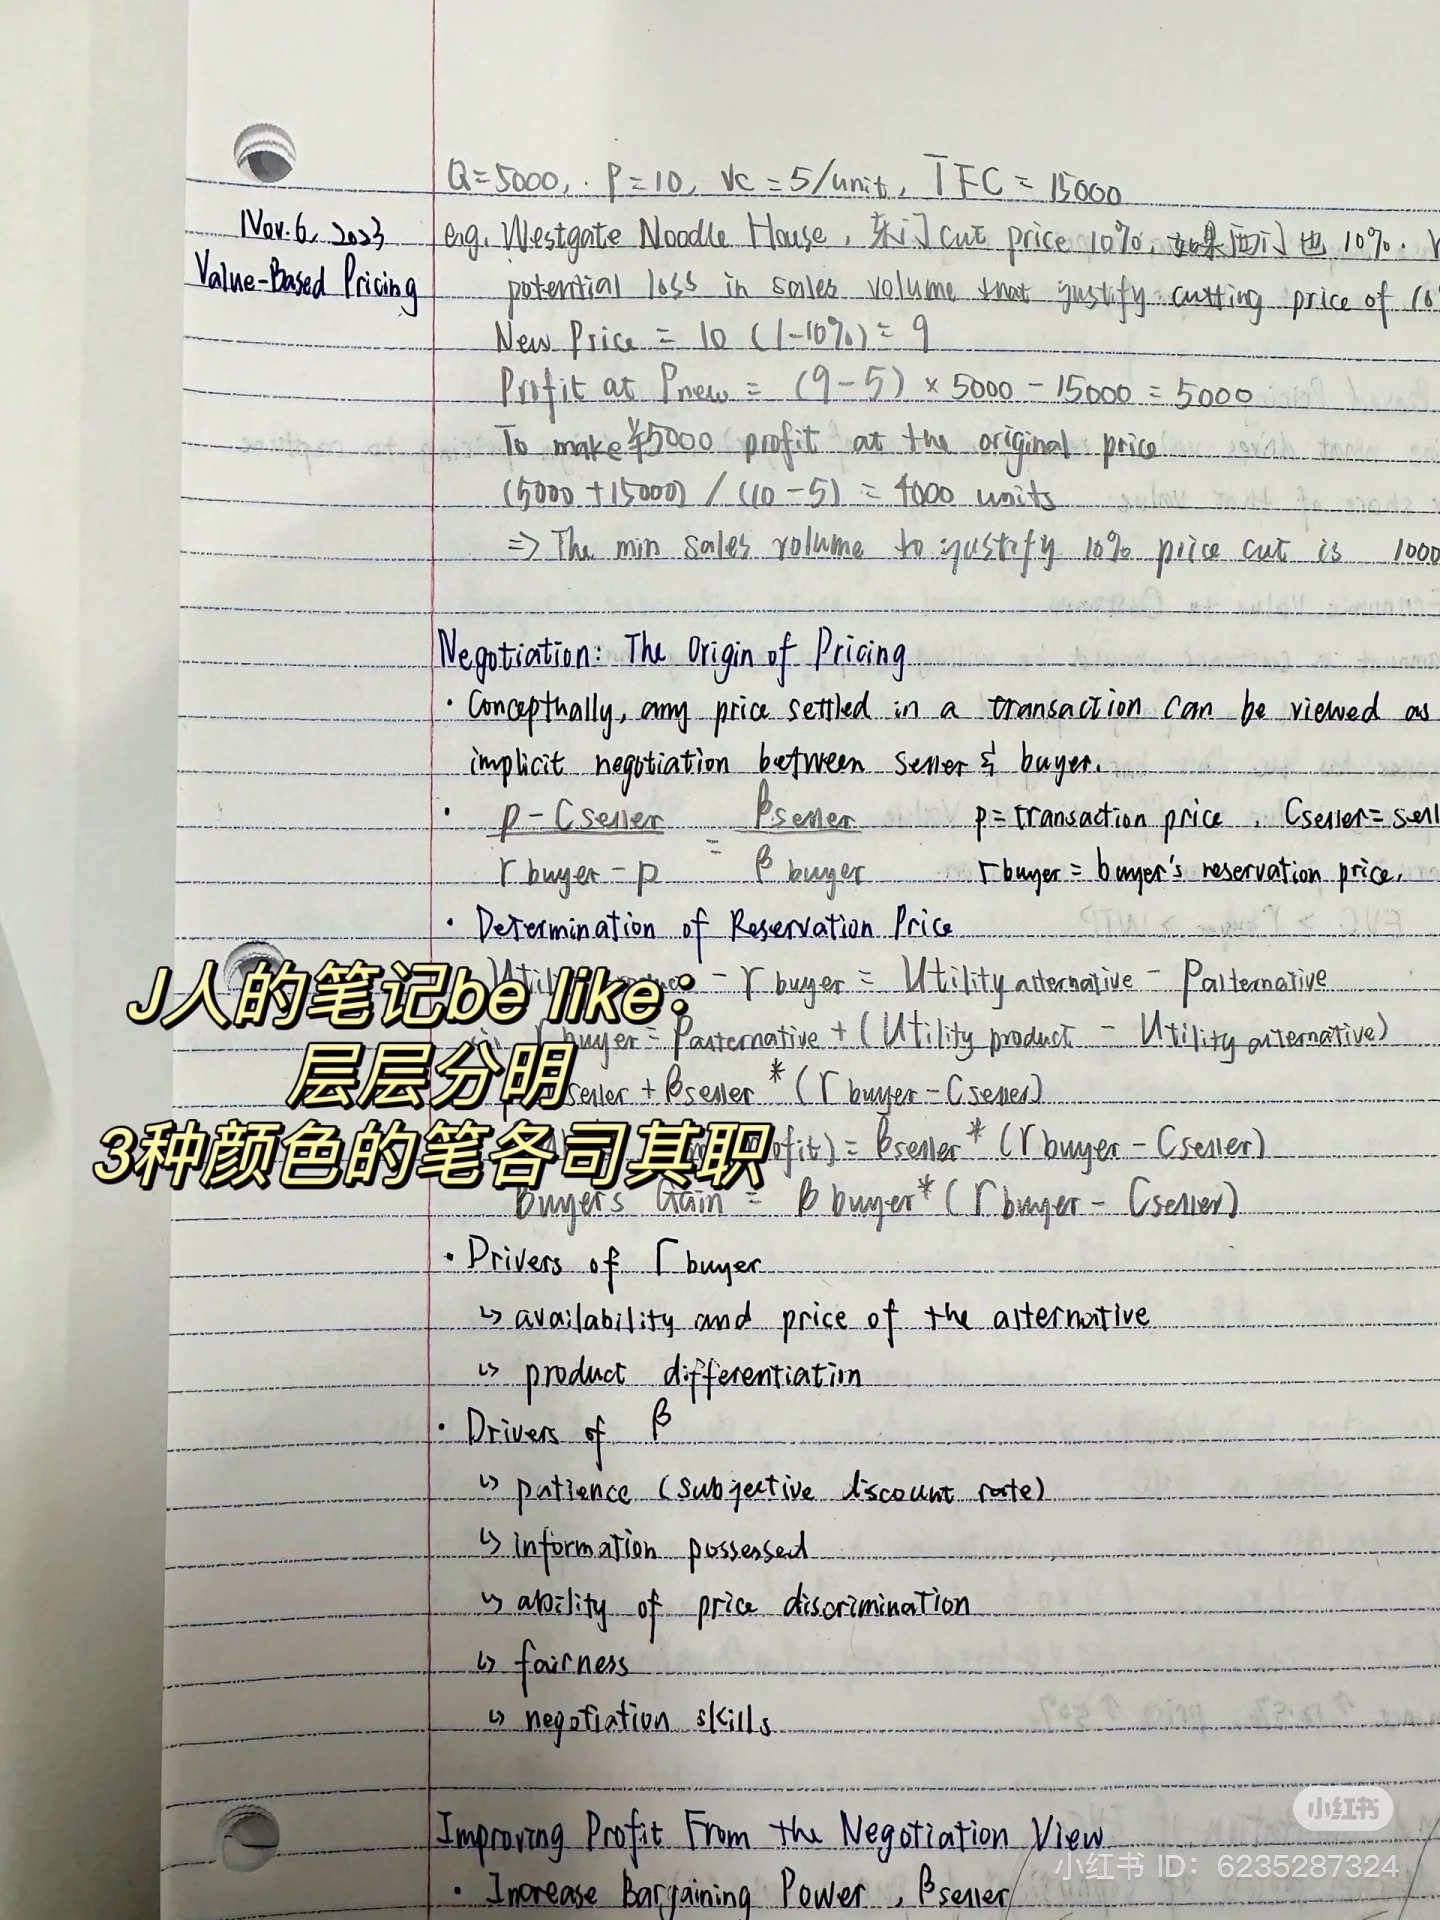 Q=5000, P=10, VC=5/unit, TFC=15000
Nov. 6, 2023
Value-Based Pricing
e.g. Westgate Noodle House, 东门 cut price 10%, 如果西门也 10%.
potential loss in sales volume that justify cutting price of 10
New Price = 10 (1-10%) = 9
Profit at Pnew = (9-5) × 5000 - 15000 = 5000
To make ¥5000 profit at the original price
(5000+15000) / (10-5) = 4000 units
=> The min sales volume to justify 10% price cut is 1000
Negotiation: The Origin of Pricing
· Concepthally, any price settled in a transaction can be viewed as
implicit negotiation between seller & buyer.
· p - Cseller / rbuyer - p = βseller / βbuyer
p = transaction price, Cseller = sell
rbuyer = buyer's reservation price.
· Determination of Reservation Price
- rbuyer = Utility alternative - Palternative
rbuyer = Palternative + (Utility product - Utility alternative)
seller + βseller * (rbuyer - Cseller)
ofit) = βseller * (rbuyer - Cseller)
Buyers Gain = βbuyer * (rbuyer - Cseller)
J人的笔记be like：
层层分明
3种颜色的笔各司其职
· Drivers of rbuyer
↳ availability and price of the alternative
↳ product differentiation
· Drivers of β
↳ patience (subjective discount rate)
↳ information possessed
↳ ability of price discrimination
↳ fairness
↳ negotiation skills
Improving Profit From the Negotiation View
· Increase Bargaining Power, βseller
小红书
小红书 ID: 6235287324